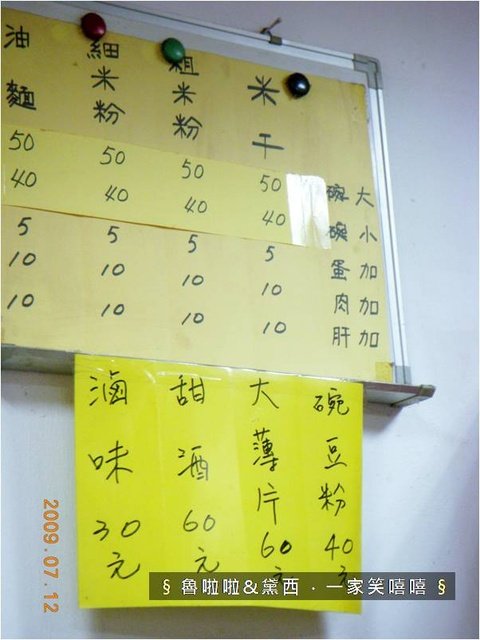 大碗
小碗
加蛋
加肉
加肝
米干
50
40
5
10
10
粗米粉
50
40
5
10
10
細米粉
50
40
5
10
10
油麵
50
40
5
10
10
碗豆粉40元
大薄片60元
甜酒60元
滷味30元
2009.07.12
§ 魯啦啦&黛西．一家笑嘻嘻 §